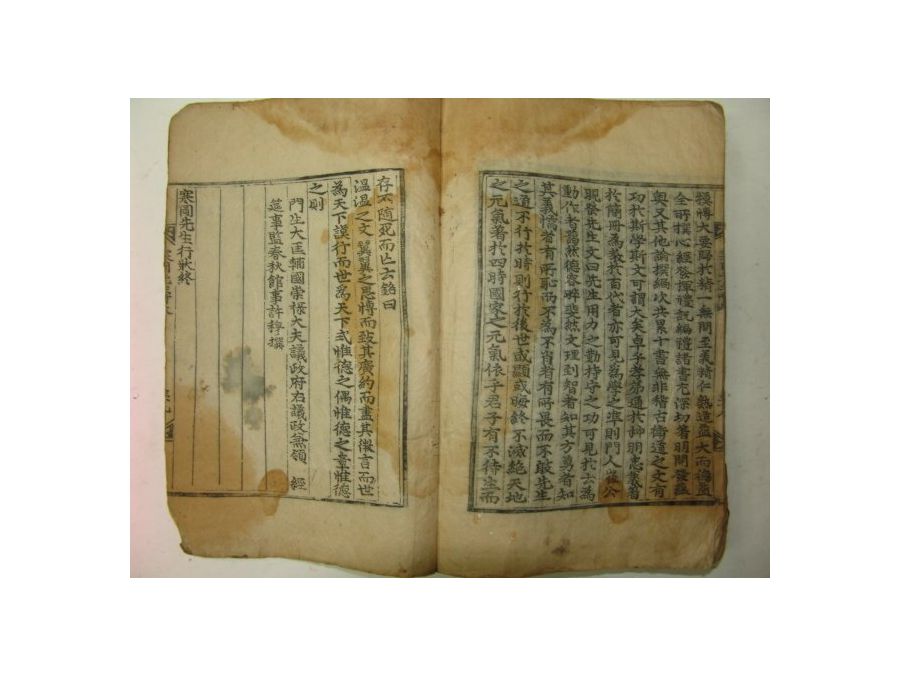 授博大要歸於精一無間至義精仁熟道益大而禮益
全所撰心經發揮禮說編禮諸書尤深切著明開發蘊
奧又其他論撰編次共累十書無非稽古衛道之文有
功於斯學斯文可謂大矣卓乎孝弟通於神明忠義著
於簡冊為教於百代者亦可見為學之準則門人崔公
晛祭先生文曰先生用力之勤持守之功可見於去為
動作者藹然德容睟盎然文理到智者知其方勇者知
其義懦者有所恥而不為不肖者有所畏而不敢先生
之道不行於時則行於後世或顯或晦終不滅絕天地
之元氣著於四時國家之元氣依乎君子有不待生而
存不隨死而亡云銘曰
溫溫之文翼翼之思博而致其廣約而盡其微言而世
為天下謨行而世為天下式惟德之偶惟德之章惟德
之則
門生大匡輔國崇祿大夫議政府右議政兼領 經
筵事監春秋館事許穆撰
寒岡先生行狀終